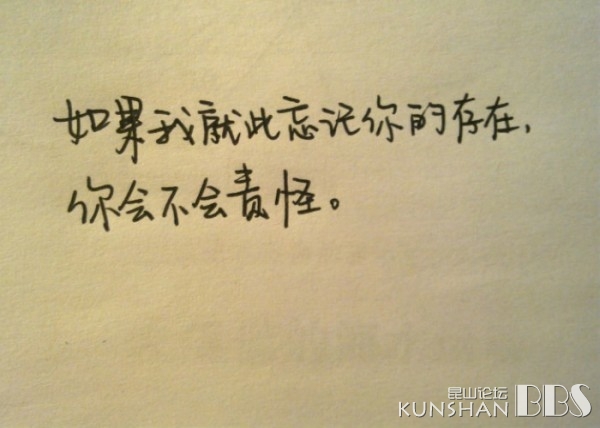 如果我就此忘记你的存在,
你会不会责怪。
昆山论坛
KUNSHAN BBS